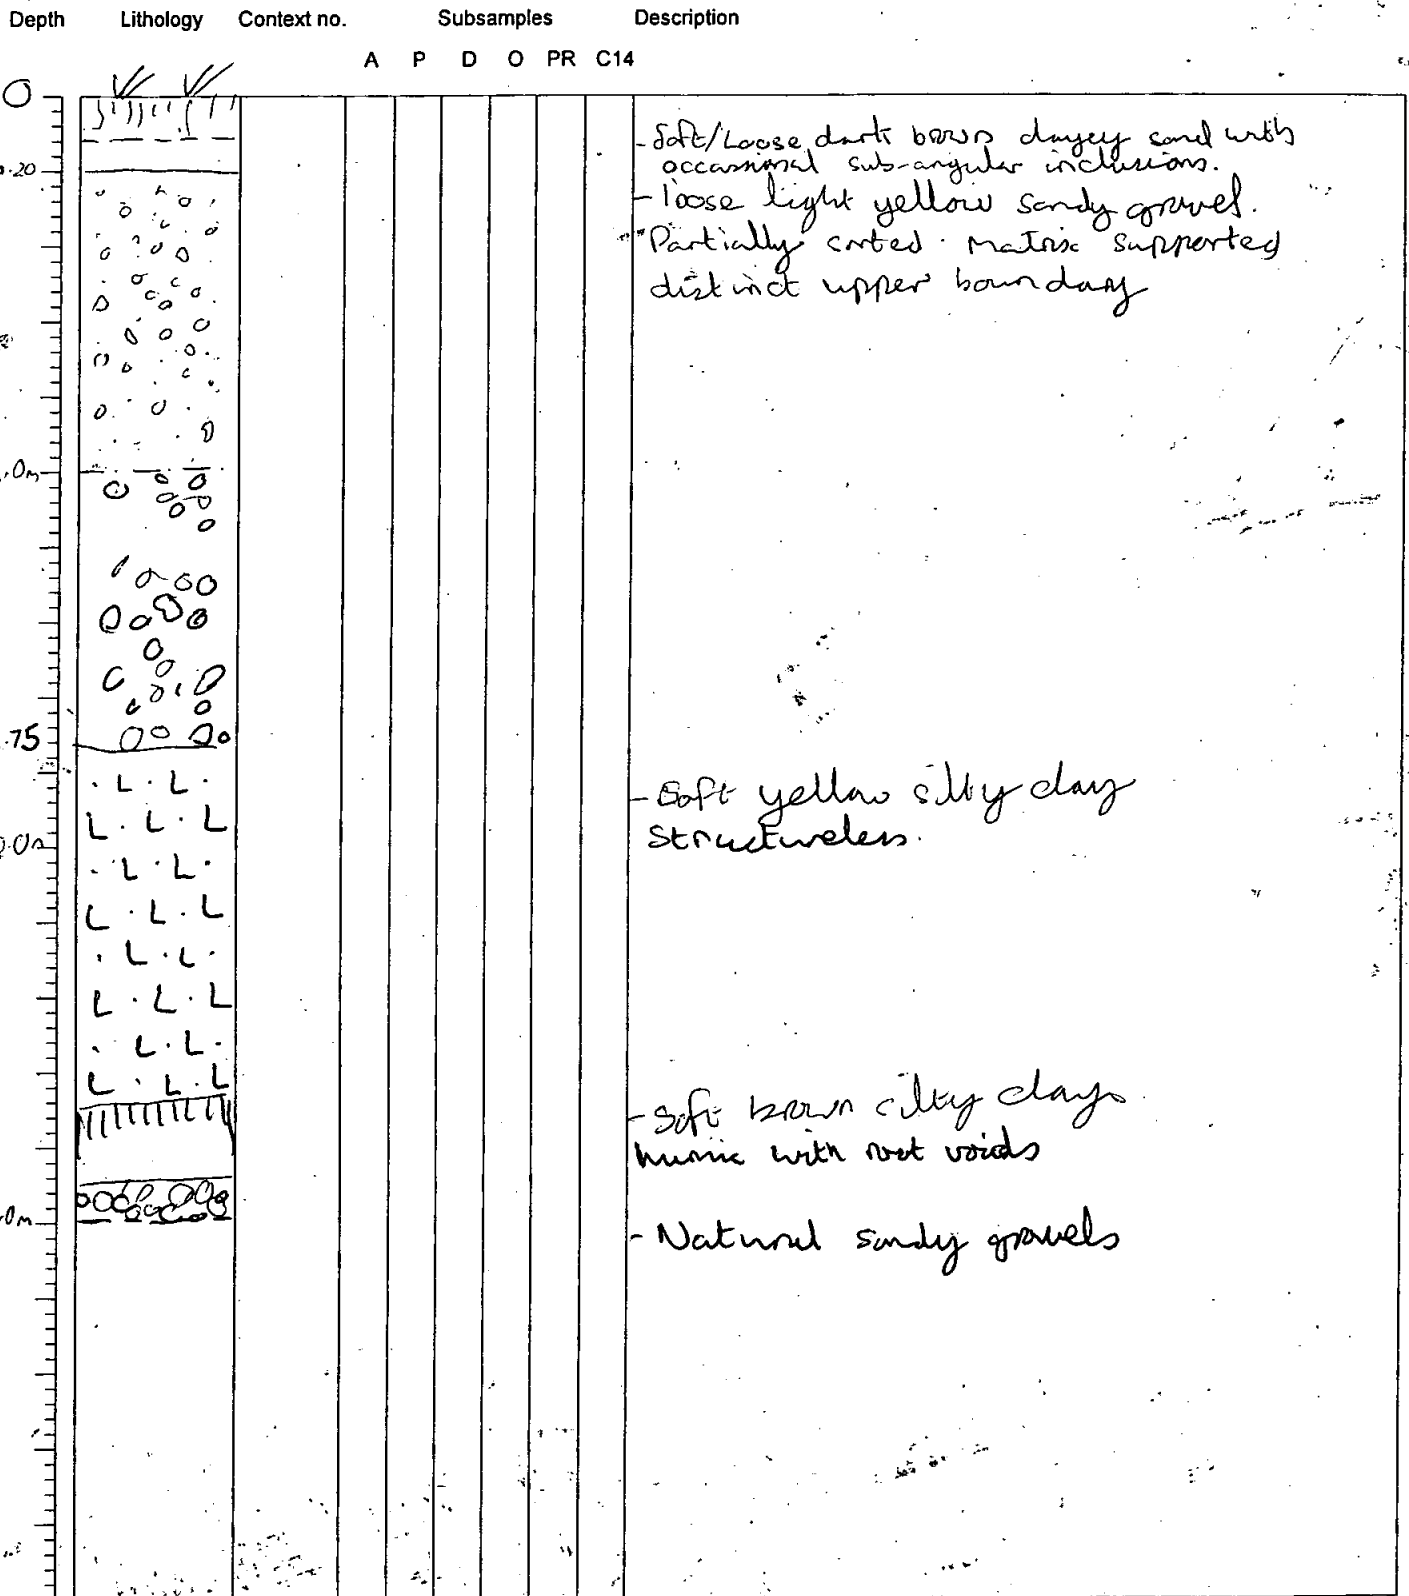 Depth Lithology Context no. Subsamples Description
A P D O PR C14
0
.20
- Soft/Loose dark brown clayey sand with
occassional sub-angular inclusions.
- loose light yellow sandy gravel.
Partially sorted. Matrix supported
distinct upper boundary
.0m
.75
- Soft yellow silty clay
Structureless.
.0m
- Soft brown silty clays
humic with root voids
.0m
- Natural sandy gravels